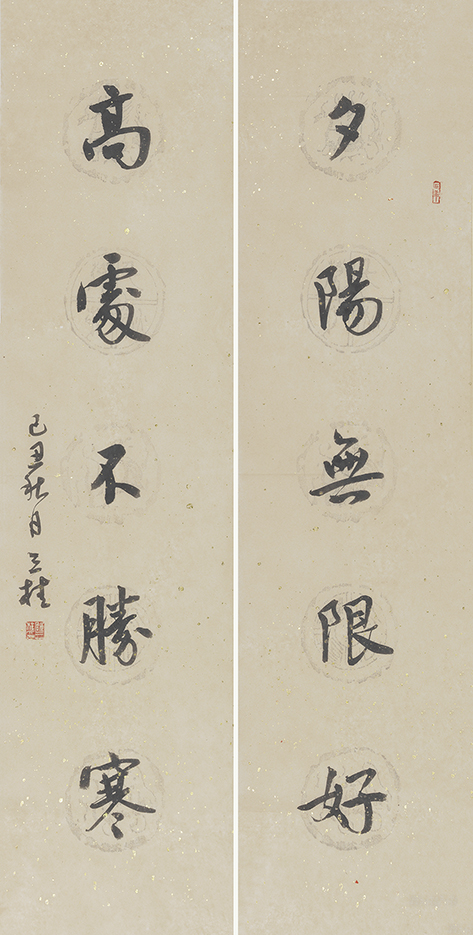 夕陽無限好
高處不勝寒
己丑秋月 三桂